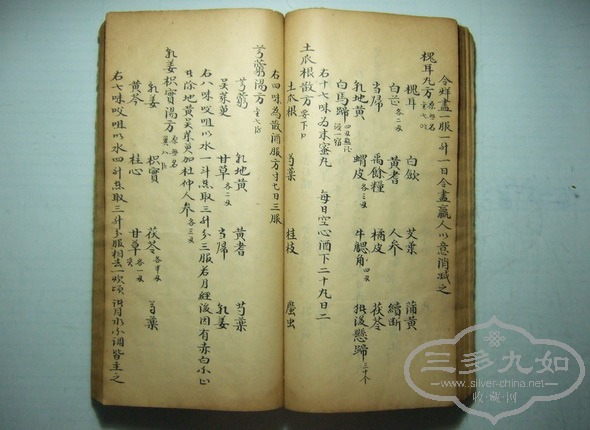 合鮮盡一服一升一日令盡羸人以意消减之
槐耳丸方
槐耳 白歛 艾葉 蒲黃
白芷 各二分 黃耆 人參 續斷
当归 禹餘糧 橘皮 茯苓
乳地黃 蝟皮 牛䚡角 四分
白馬蹄
右十七味為末蜜丸 每日空心酒下二十九日二
土瓜根散方
土瓜根 芍藥 桂枝 䗪虫
右四味為散酒服方寸匕日三服
芎藭湯方
芎藭 乳地黃 黃耆 芍藥
吴茱萸 甘草 各二分 当归 乳姜
右八味㕮咀以水一斗煑取三升分三服若月經後因有赤白不止
除地黃吴茱萸加杜仲人參
乳姜枳實湯方
乳姜 枳實 茯苓 芍藥
黃芩 桂心 甘草
右七味㕮咀以水四升煑取三升分服相去一炊頃治月水不調皆主之
三多九如
www.silver-china.net
收·藏·网